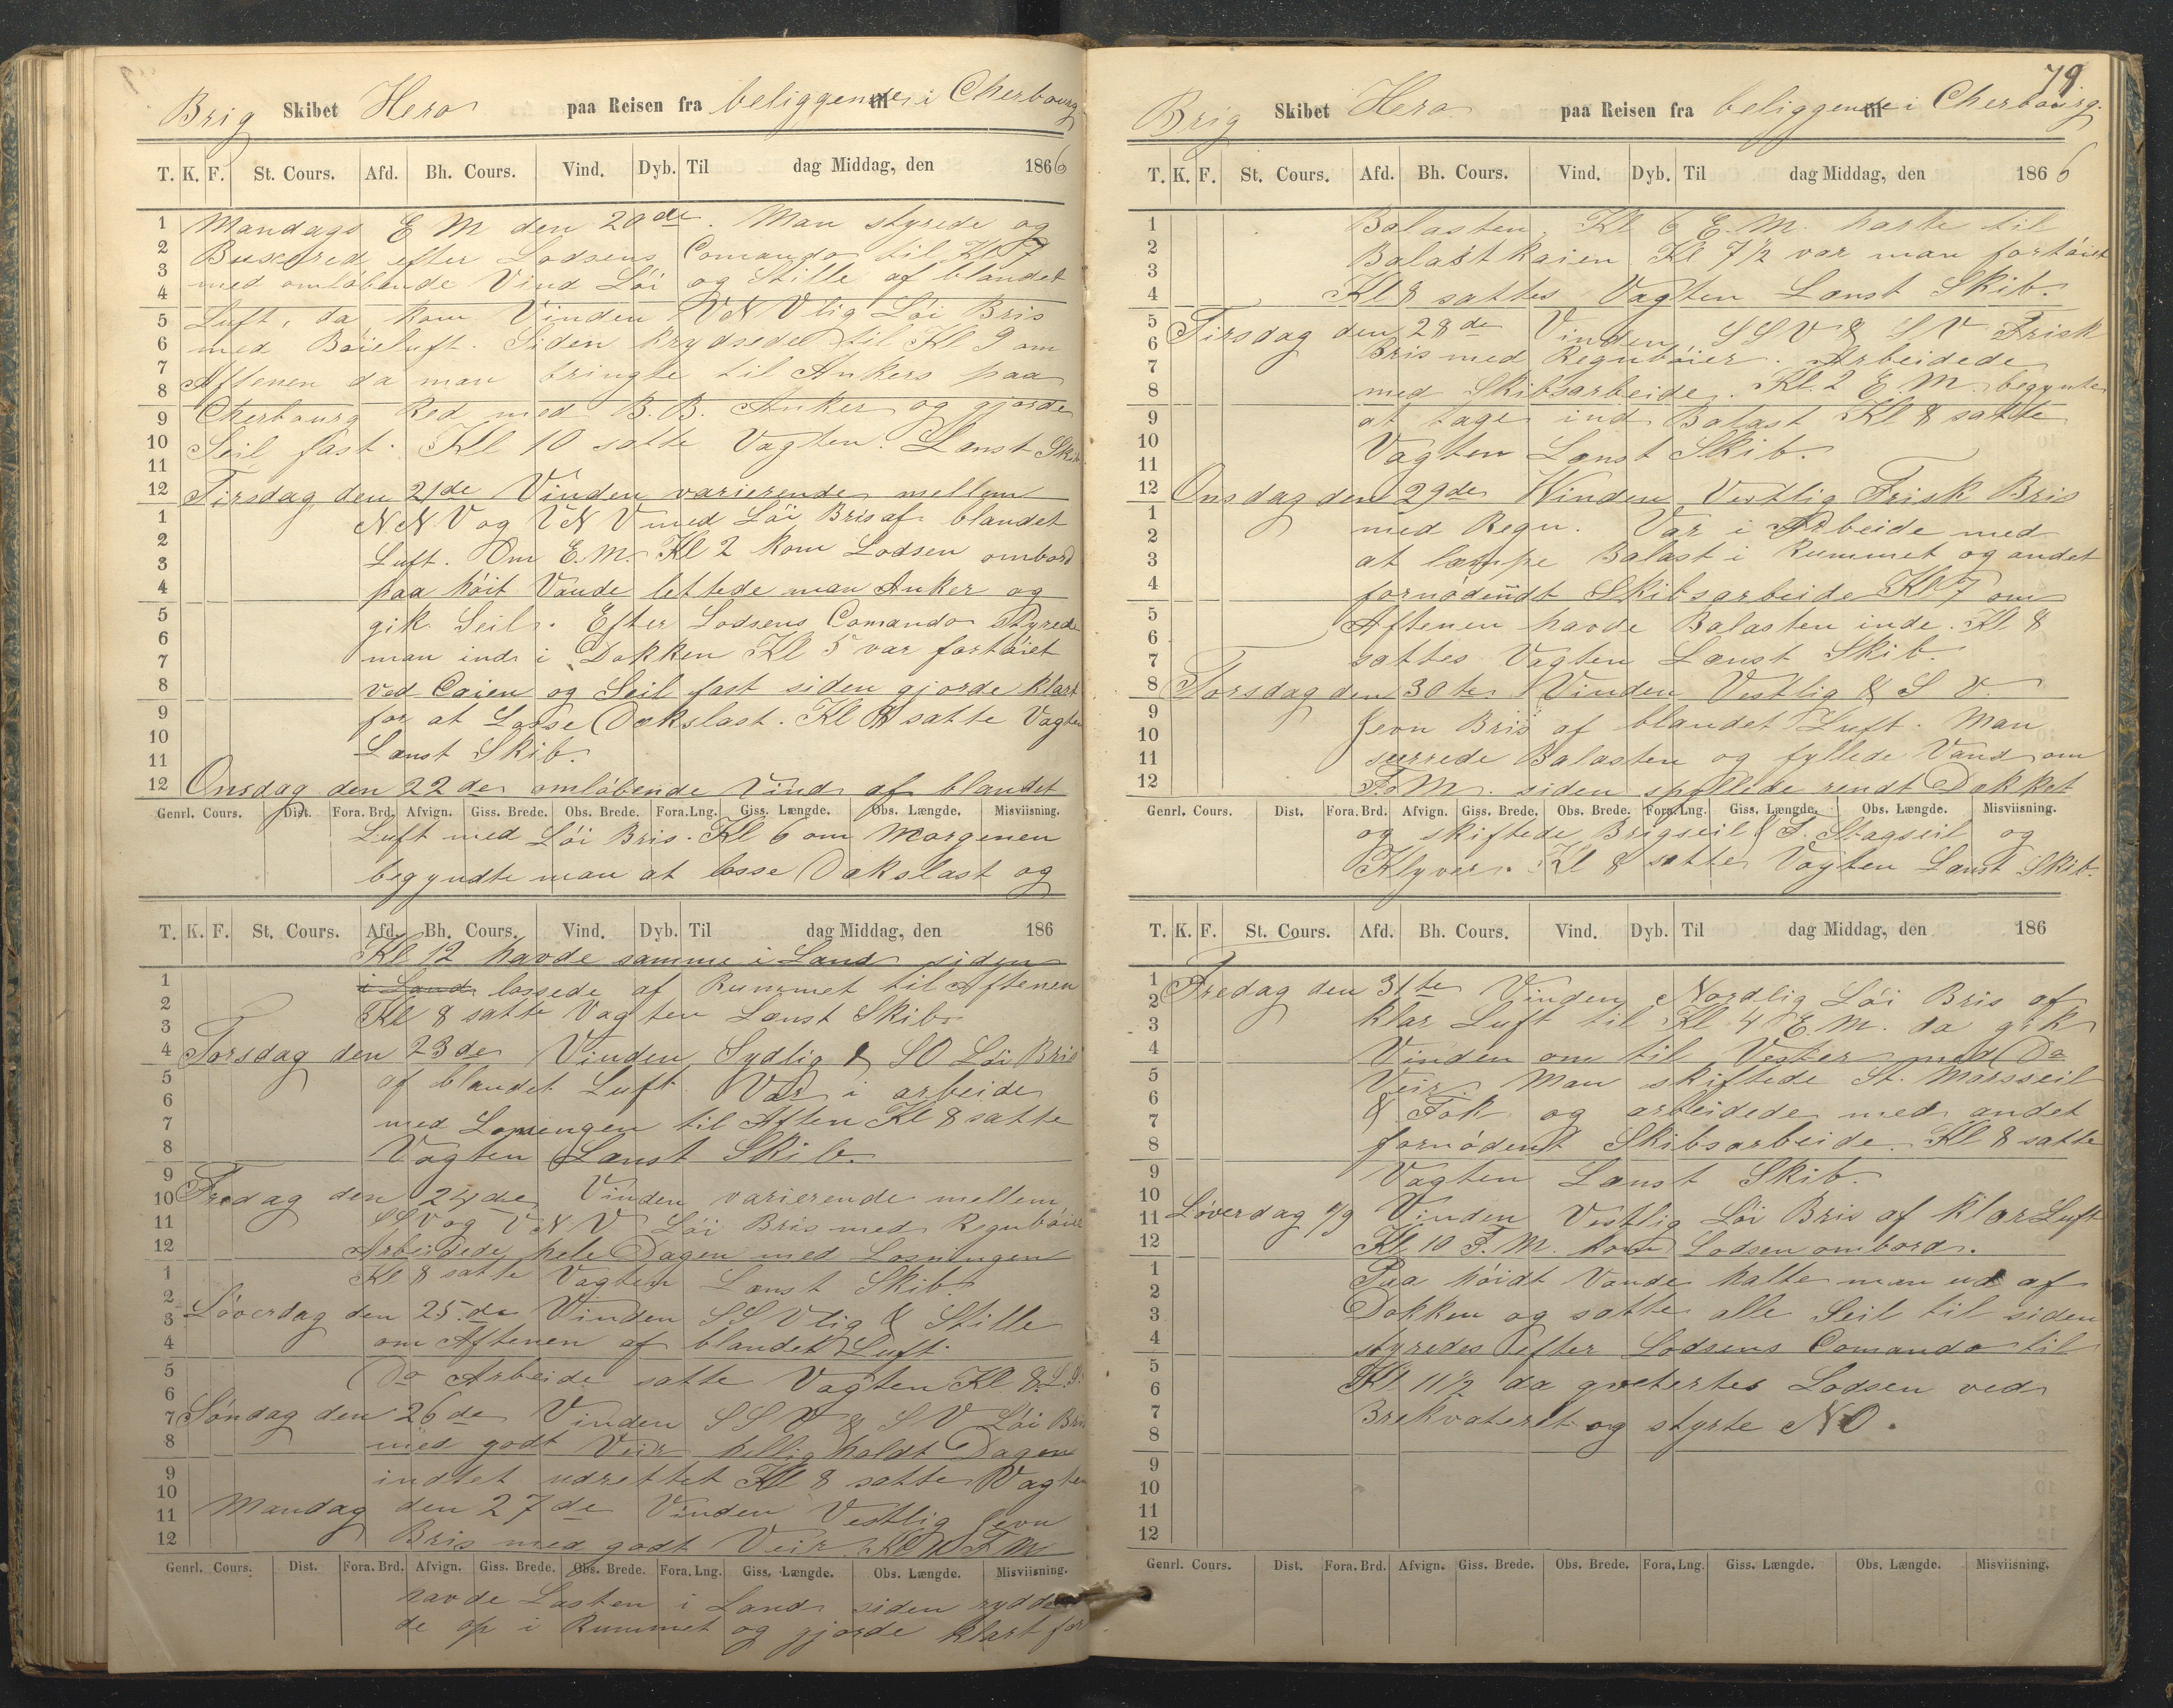 Brig Skibet Hero paa Reisen fra beliggende til i Cherbourg
T. K. F. St. Cours. Afd. Bh. Cours. Vind. Dyb. Til dag Middag, den 1866
1 2 3 4 5 6 7 8 9 10 11 12
Mandags E M den 20de. Man styrede og
Buxerede efter Lodsens Comando til Kl 7
med omløbende Vind Løi og Stille af blandet
Luft, da kom Vinden VNVlig Løi Bris
med Böieluft. Siden krydsede til Kl 9 om
Aftenen da man bringte til Ankers paa
Cherbourg Red med B.B. Anker og gjorde
Seil fast. Kl 10 satte Vagten. Lænst Skib
Tirsdag den 21de Vinden varierende mellem
1 2 3 4 5 6 7 8 9 10 11 12
NNV og VNV med Løi Bris af blandet
Luft. Om E.M. Kl 2 kom Lodsen ombord
paa höit Vande lettede man Anker og
gik Seil. Efter Lodsens Comando Styrede
man ind i Dokken Kl 5 var fortøiet
ved Caien og Seil fast siden gjorde klart
for at Losse Dækslast. Kl 8 satte Vagten
Lænst Skib.
Onsdag den 22de omløbende Vind af blandet
Genrl. Cours. Dist. Fora. Brd. Afvign. Giss. Brede. Obs. Brede. Fora. Lng. Giss. Længde. Obs. Længde. Misviisning.
Luft med Løi Bris. Kl 6 om Morgenen
begyndte man at losse Dækslast og
T. K. F. St. Cours. Afd. Bh. Cours. Vind. Dyb. Til dag Middag, den 186
Kl 12 havde samme i Land siden
1 2 3 4 5 6 7 8 9 10 11 12
i Land lossede af Rummet til Aftenen
Kl 8 satte Vagten Lænst Skib.
Torsdag den 23de Vinden Sydlig & SO Løi Bris
af blandet Luft. Var i arbeide
med Losningen til Aften Kl 8 satte
Vagten Lænst Skib.
Fredag den 24de Vinden varierende mellem
SSV og VNV Løi Bris med Regnbøier
Arbeidede hele Dagen med Losningen
1 2 3 4 5 6 7 8 9 10 11 12
Kl 8 satte Vagten Lænst Skib.
Løverdag den 25.de Vinden SSVlig & Stille
om Aftenen af blandet Luft.
Do Arbeide satte Vagten Kl 8. L.S.
Søndag den 26de Vinden SSV & SV Løi Bris
med godt Veir helligholdt Dagen
indtet udrettet Kl 8 satte Vagten
Mandag den 27de Vinden Vestlig Jevn
Bris med godt Veir. Kl 10 F M
Genrl. Cours. Dist. Fora. Brd. Afvign. Giss. Brede. Obs. Brede. Fora. Lng. Giss. Længde. Obs. Længde. Misviisning.
havde Lasten i Land siden rydde
de op i Rummet og gjorde klart for
79
Brig Skibet Hero paa Reisen fra beliggende til i Cherbourg.
T. K. F. St. Cours. Afd. Bh. Cours. Vind. Dyb. Til dag Middag, den 1866
1 2 3 4 5 6 7 8 9 10 11 12
Balasten. Kl 6 E.M. halte til
Balastkaien Kl 7½ var man fortøiet
Kl 8 sattes Vagten Lænst Skib.
Tirsdag den 28de Vinden SSV & SV Frisk
Bris med Regnbøier. Arbeidede
med Skibsarbeide. Kl. 2 E.M. begynte
at tage ind Balast Kl 8 satte
Vagten Lænst Skib.
Onsdag den 29de Winden Vestlig Frisk Bris
1 2 3 4 5 6 7 8 9 10 11 12
med Regn. Var i Arbeide med
at læmpe Balast i Rummet og andet
fornødendt Skibsarbeide Kl 7 om
Aftenen havde Balasten inde. Kl 8
sattes Vagten Lænst Skib.
Torsdag den 30te Vinden Vestlig & S V.
Jevn Bris af blandet Luft. Man
surrede Balasten og fyllede Vand om
F.M. siden spyllede rendt Dækket
Genrl. Cours. Dist. Fora. Brd. Afvign. Giss. Brede. Obs. Brede. Fora. Lng. Giss. Længde. Obs. Længde. Misviisning.
og skiftede Brigseil & S. Stagseil og
Klyver. Kl 8 satte Vagten Lænst Skib.
T. K. F. St. Cours. Afd. Bh. Cours. Vind. Dyb. Til dag Middag, den 186
1 2 3 4 5 6 7 8 9 10 11 12
Fredag den 31te Vinden Nordlig Løi Bris af
klar Luft til Kl 4 E.M. da gik
Vinden om til Vester med Do
Veir. Man skiftede St. Marsseil
& Fok og arbeidede med andet
fornødent Skibsarbeide. Kl 8 satte
Vagten Lænst Skib.
Løverdag 1/9 Vinden Vestlig Løi Bris af klar Luft
Kl 10 F.M. kom Lodsen ombord.
1 2 3 4 5 6 7 8 9 10 11 12
Paa höidt Vande halte man ud af
Dokken og satte alle Seil til siden
styredes efter Lodsens Comando til
Kl 11½ da qvetertes Lodsen ved
Brekvateret og styrte NO.
Genrl. Cours. Dist. Fora. Brd. Afvign. Giss. Brede. Obs. Brede. Fora. Lng. Giss. Længde. Obs. Længde. Misviisning.